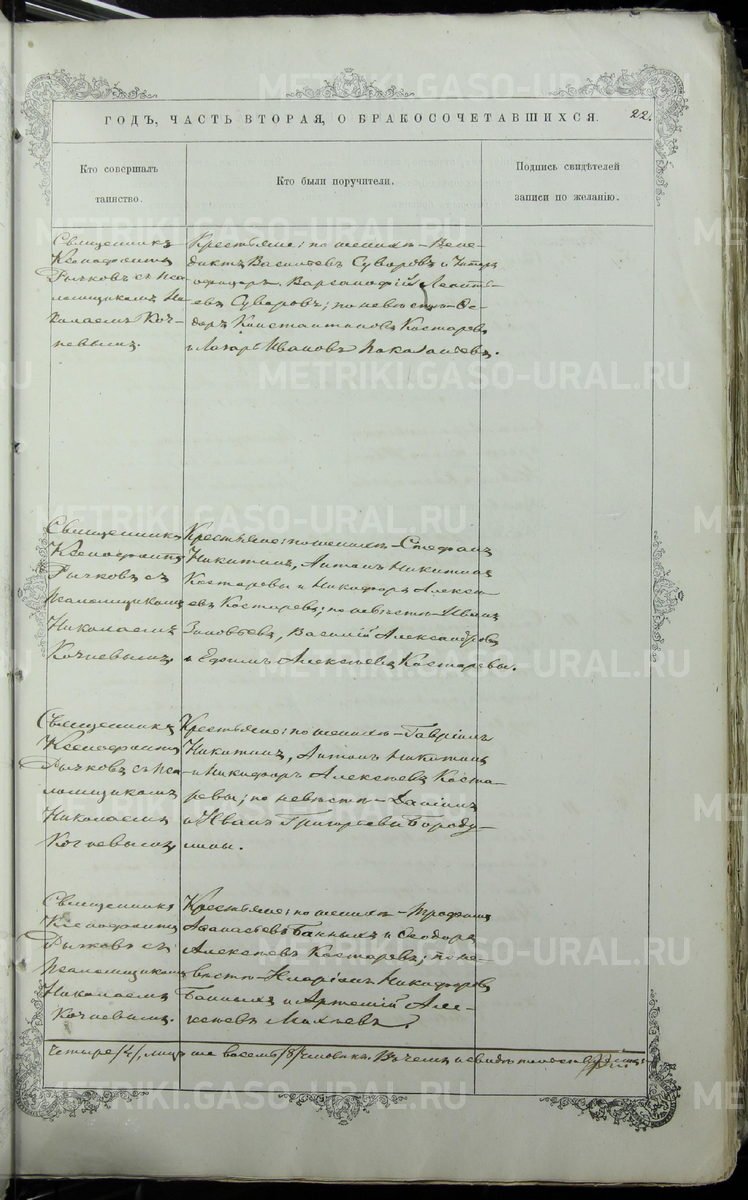 ГОДЪ, ЧАСТЬ ВТОРАЯ, О БРАКОСОЧЕТАВШИХСЯ.
22.
Кто совершалъ
таинство.
Кто были поручители.
Подпись свидѣтелей
записи по желанію.
Священникъ
Ксенофонтъ
Рычковъ съ пса-
ломщикомъ Ни-
колаемъ Коч-
невымъ.
Крестьяне: по женихѣ - Вене-
диктъ Васильевъ Суворовъ и Унтеръ
офицеръ Варсанофій
евъ Суворовъ; по невѣстѣ - Ѳе-
доръ Константиновъ Костаревъ
и Лазарь Ивановъ
Священникъ
Ксенофонтъ
Рычковъ съ
псаломщикомъ
Николаемъ
Кочневымъ.
Крестьяне: по женихѣ - Стефанъ
Никитинъ, Антонъ Никитинъ
Костаревы и Никифоръ Алексѣ-
евъ Костаревъ; по невѣстѣ - Иванъ
Зиновьевъ, Василій Александровъ
и Ефимъ Алексѣевъ Костаревы.
Священникъ
Ксенофонтъ
Рычковъ съ пса-
ломщикомъ
Николаемъ
Кочневымъ.
Крестьяне: по женихѣ - Гавріилъ
Никитинъ, Антонъ Никитинъ
и Никифоръ Алексѣевъ Коста-
ревы; по невѣстѣ - Даніилъ
и Иванъ Григорьевы Бороду-
лины.
Священникъ
Ксенофонтъ
Рычковъ съ
псаломщикомъ
Николаемъ
Кочневымъ.
Крестьяне: по женихѣ - Трофимъ
Аѳанасьевъ Банныхъ и Ѳеодоръ
Алексѣевъ Костаревъ; по не-
вѣстѣ - Иларіонъ Никифоровъ
Банныхъ и Артемій Але-
ксѣевъ
четыре /4/, лицъ же восемь /8/ человѣкъ. Въ чемъ и свидѣтельствуемъ:
METRIKI.GASO-URAL.RU